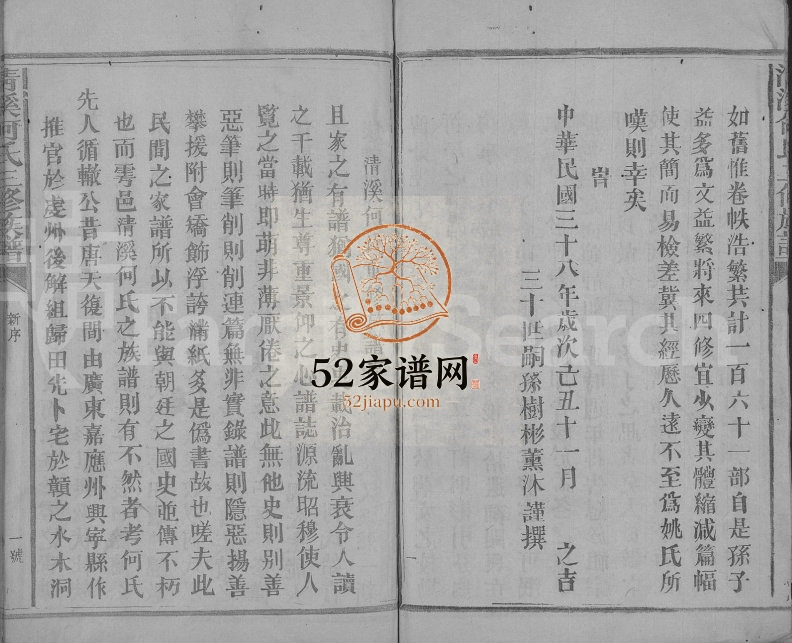 如舊惟卷帙浩繁共計一百六十一部自是孫子
益多爲文益繁將來四修宜少變其體縮減篇幅
使其簡而易檢差冀其經歷久遠不至爲姚氏所
嘆則幸矣
旹
中華民國三十八年歲次己丑十一月 之吉
三十世嗣孫樹彬薰沐謹撰
清溪何
且家之有譜猶國 有史 載治亂興衰令人讀
之千載猶生尊重景仰之心譜誌源流昭穆使人
覽之當時即萌非薄厭倦之意此無他史則別善
惡筆則筆削則削連篇無非實錄譜則隱惡揚善
攀援附會矯飾浮誇滿紙多是僞書故也嗟夫此
民間之家譜所以不能與朝廷之國史並傳不朽
也而雩邑清溪何氏之族譜則有不然者考何氏
先人循轍公昔唐天復間由廣東嘉應州興寧縣作
推官於虔州後解組歸田先卜宅於贛之水木洞
清溪何氏三修族譜
新序
一號
52家谱网
52jiapu.com